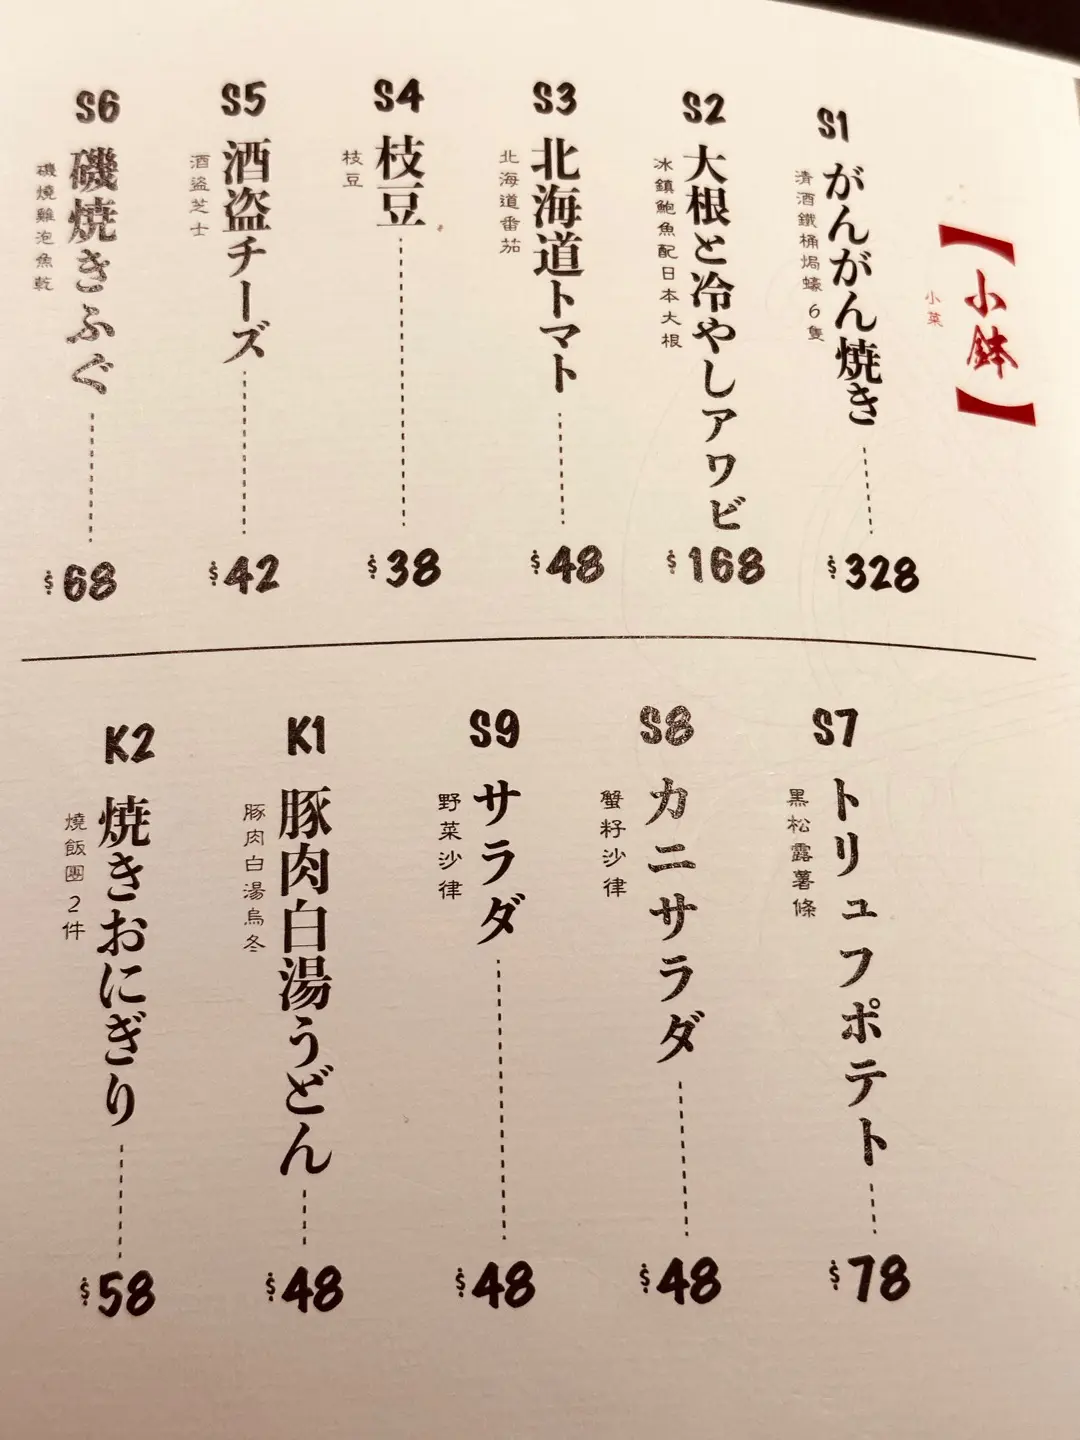 【小鉢】
小菜
S1
がんがん焼き
清酒鐵桶焗蠔6隻
$328
S2
大根と冷やしアワビ
冰鎮鮑魚配日本大根
$168
S3
北海道トマト
北海道番茄
$48
S4
枝豆
枝豆
$38
S5
酒盗チーズ
酒盜芝士
$42
S6
磯焼きふぐ
磯燒雞泡魚乾
$68
S7
トリュフポテト
黑松露薯條
$78
S8
カニサラダ
蟹籽沙律
$48
S9
サラダ
野菜沙律
$48
K1
豚肉白湯うどん
豚肉白湯烏冬
$48
K2
焼きおにぎり
燒飯團2件
$58